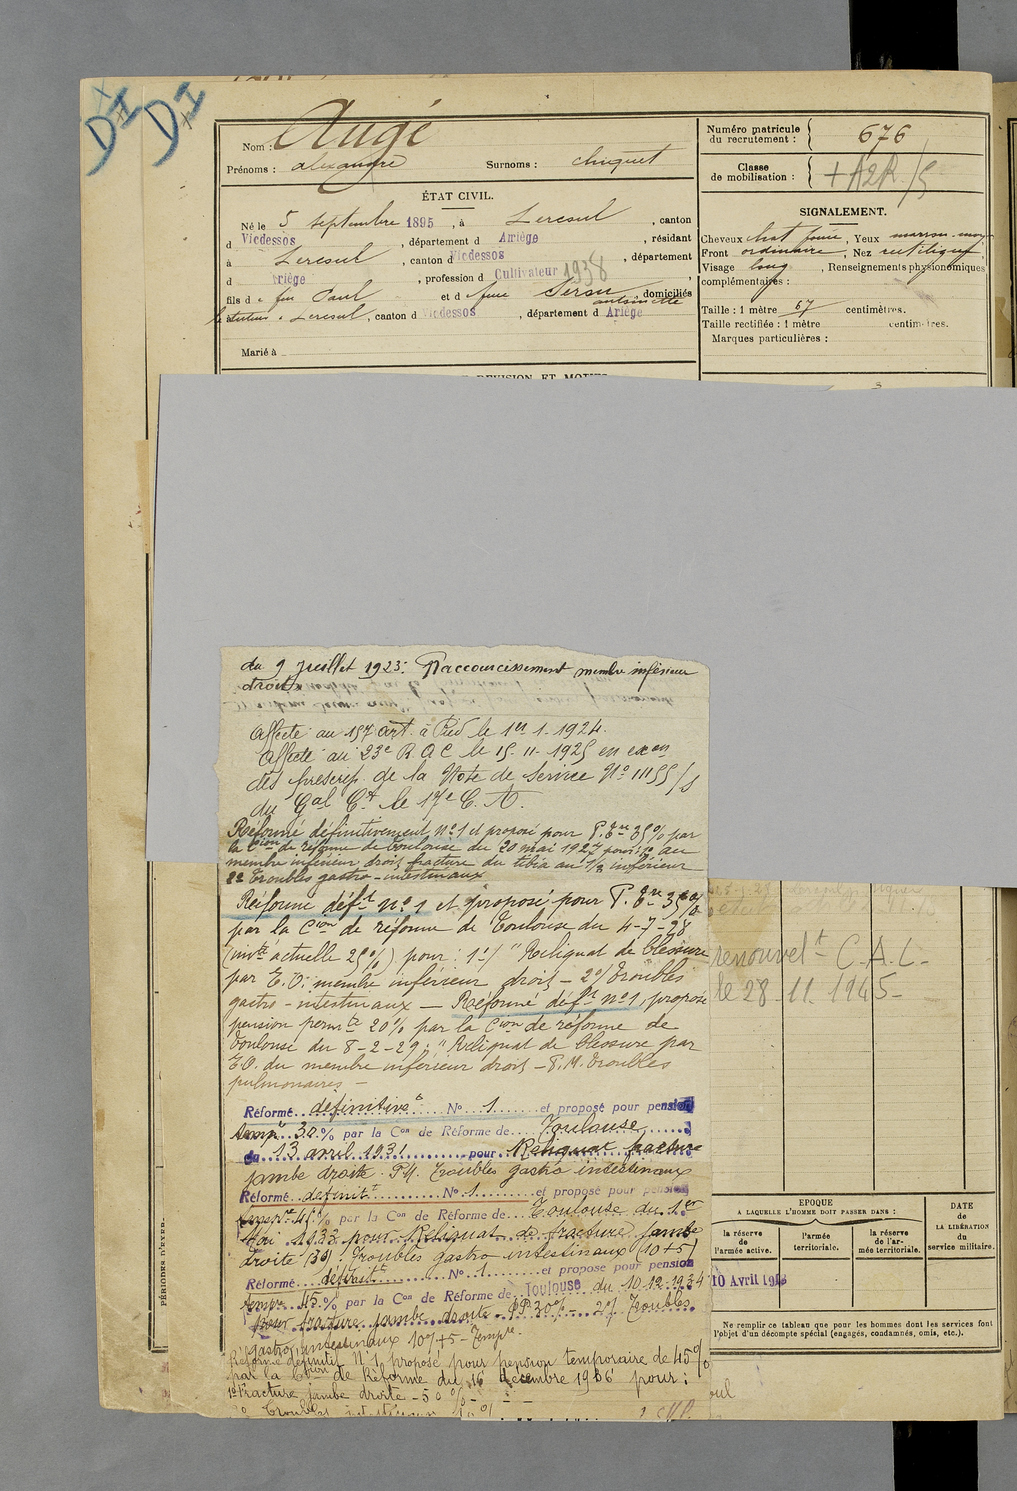 DI
DI
Nom : Augé
Prénoms : alexandre Surnoms : chiquet
Numéro matricule
du recrutement : 676
Classe
de mobilisation :
ÉTAT CIVIL.
Né le 5 septembre 1895, à Lercoul, canton
d Vicdessos, département d Ariège, résidant
à Lercoul, canton d Vicdessos, département
d Ariège, profession d Cultivateur 1938
fils d e feu Paul et d e feue antoinette domiciliés
Lercoul, canton d Vicdessos, département d Ariège
Marié à
SIGNALEMENT.
Cheveux chat foncé, Yeux marron
Front ordinaire, Nez rectiligne
Visage long, Renseignements physionomiques
complémentaires :
Taille : 1 mètre 67 centimètres.
Taille rectifiée : 1 mètre centimètres.
Marques particulières :
du 9 juillet 1923. Raccourcissement membre inférieur
droit
Affecté au 157 art. à Pied le 1er 1. 1924.
Affecté au 23e R A C le 15. 11. 1925 en exon
des prescrip. de la Note de Service No 11155/S
du Gal Ct le 17e C. A.
Réformé définitivement No 1 et proposé pour P. 35% par
la Cion de réforme de Toulouse du 20 mai 1927 pour : 1o au
membre inférieur droit fracture du tibia au 1/3 inférieur
2o Troubles gastro-intestinaux
Réformé déft no 1 et proposé pour P. 35%
par la Cion de réforme de Toulouse du 4-7-28
(invté actuelle 25%) pour : 1o/ "Reliquat de blessure
par E. O. membre inférieur droit - 2o/ Troubles
gastro-intestinaux — Réformé déft no 1, proposé
pension permte 20% par la Cion de réforme de
Toulouse du 8-2-29 : "Reliquat de blessure par
EO. du membre inférieur droit - P. M. Troubles
pulmonaires —
Réformé définitive No 1 et proposé pour pension
temp 30% par la Con de Réforme de Toulouse
du 13 avril 1931 pour Reliquat fracture
jambe droite. P.M. Troubles gastro intestinaux
Réformé définit No 1 et proposé pour pension
temp 45% par la Con de Réforme de Toulouse du 1er
Mai 1933 pour Reliquat de fracture jambe
droite (30). Troubles gastro intestinaux (10+5)
Réformé définit No 1 et proposé pour pension
temp 45% par la Con de Réforme de Toulouse du 10.12.1934
pour fracture jambe droite PP30% - 2o/ Troubles
gastro intestinaux 10+5 - Tempre.
Réformé définitif No 1 proposé pour pension temporaire de 45%
par la Cion de Réforme du 16 décembre 1936 pour :
1o Fracture jambe droite -
renouvelt C.A.L-
le 28.11.1945-
EPOQUE
A LAQUELLE L'HOMME DOIT PASSER DANS :
la réserve
de l'armée active.
l'armée
territoriale.
la réserve
de l'ar-
mée territoriale.
DATE
de
LA LIBÉRATION
du
service militaire.
10 Avril
Ne remplir ce tableau que pour les hommes dont les services font
l'objet d'un décompte spécial (engagés, condamnés, omis, etc.).
PÉRIODES D'EXER.